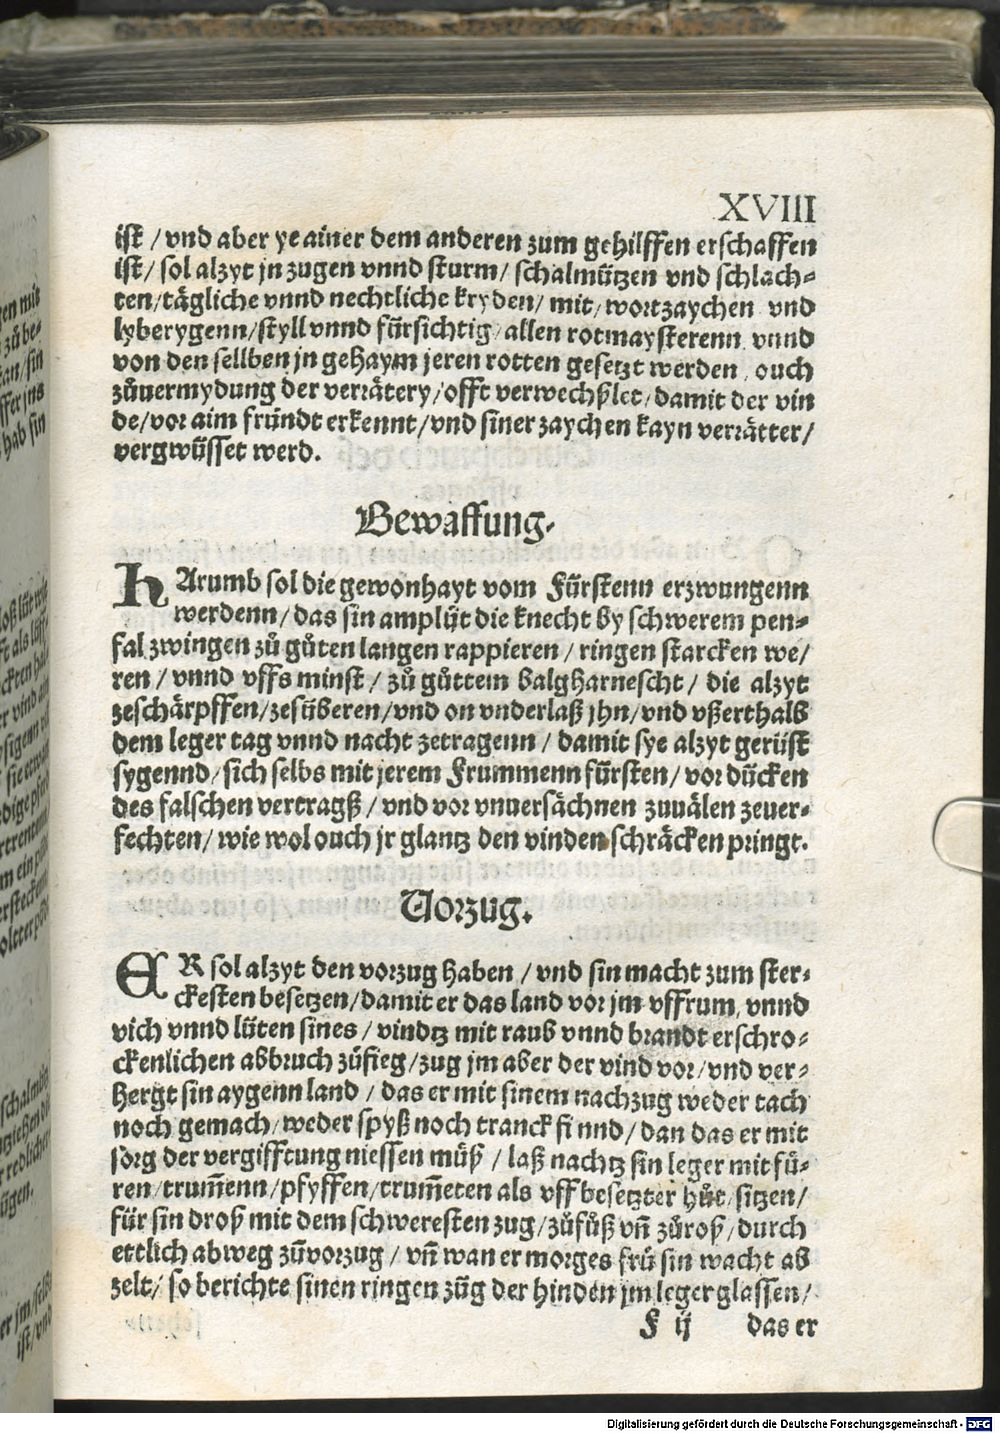 XVIII
ist / vnd aber ye ainer dem anderen zum gehilffen erschaffen
ist / sol alzyt jn zugen vnnd sturm / schalmützen vnd schlach⸗
ten / tägliche vnnd nechtliche kryden / mit / wortzaychen vnd
lyberygenn / styll vnnd fürsichtig / allen rotmaysterenn vnnd
von den sellben jn gehaym jeren rotten gesetzt werden / ouch
zůuermydung der verrätery / offt verwechßlet / damit der vin
de / vor aim fründt erkennt / vnd siner zaychen kayn verrätter /
vergwüsset werd.
Bewaffung.
HArumb sol die gewonhayt vom Fürstenn erzwungenn
werdenn / das sin amplüt die knecht by schwerem pen⸗
fal zwingen zů gůten langen rappieren / ringen starcken we /
ren / vnnd vffs minst / zů gůttem balgharnescht / die alzyt
zeschärpffen / zesüberen / vnd on vnderlaß jhn / vnd vßerthalb
dem leger tag vnnd nacht zetragenn / damit sye alzyt gerüst
sygennd / sich selbs mit jerem Frummenn fürsten / vor dücken
des falschen vertragß / vnd vor vnuersächnen zuuälen zeuer⸗
fechten / wie wol ouch jr glantz den vinden schräcken pringt.
Vorzug.
ER sol alzyt den vorzug haben / vnd sin macht zum ster⸗
ckesten besetzen / damit er das land vor jm vffrum / vnnd
vich vnnd lüten sines / vindtz mit raub vnnd brandt erschro⸗
ckenlichen abbruch zůfieg / zug jm aber der vind vor / vnd ver⸗
hergt sin aygenn land / das er mit sinem nachzug weder tach
noch gemach / weder spyß noch tranck finnd / dan das er mit
sorg der vergifftung niessen müß / laß nachtz sin leger mit fü⸗
ren / trum̄enn / pfyffen / trum̄eten als vff besetzter hůt / sitzen /
für sin droß mit dem schweresten zug / zůfůß vn̄ zůroß / durch
ettlich abweg zůvorzug / vn̄ wan er morges frü sin wacht ab
zelt / so berichte sinen ringen zůg der hinden jm leger glassen /
F ij das er
Digitalisierung gefördert durch die Deutsche Forschungsgemeinschaft - DFG